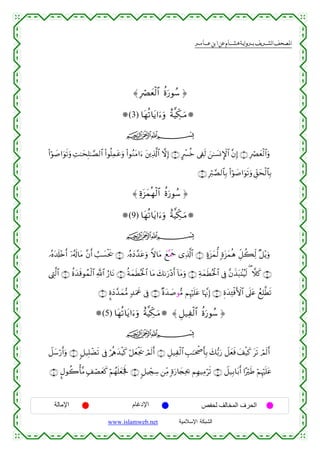 المصحف الشريف برواية هشام عن ابن عامر
﴿ سُورَةُ ٱلْعَصْرِ ﴾
* مَكِّيَّةٌ وَءَايَاتُهَا (3) *
بِسْمِ ٱللَّهِ ٱلرَّحْمَٰنِ ٱلرَّحِيمِ
وَٱلْعَصْرِ ۝ إِنَّ ٱلْإِنسَٰنَ لَفِى خُسْرٍ ۝ إِلَّا ٱلَّذِينَ ءَامَنُوا۟ وَعَمِلُوا۟ ٱلصَّٰلِحَٰتِ وَتَوَاصَوْا۟
بِٱلْحَقِّ وَتَوَاصَوْا۟ بِٱلصَّبْرِ ۝
﴿ سُورَةُ ٱلْهُمَزَةِ ﴾
* مَكِّيَّةٌ وَءَايَاتُهَا (9) *
بِسْمِ ٱللَّهِ ٱلرَّحْمَٰنِ ٱلرَّحِيمِ
وَيْلٌ لِّكُلِّ هُمَزَةٍ لُّمَزَةٍ ۝ ٱلَّذِى جَمَّعَ مَالًا وَعَدَّدَهُۥ ۝ يَحْسَبُ أَنَّ مَالَهُۥٓ أَخْلَدَهُۥ
۝ كَلَّا ۖ لَيُنۢبَذَنَّ فِى ٱلْحُطَمَةِ ۝ وَمَآ أَدْرَىٰكَ مَا ٱلْحُطَمَةُ ۝ نَارُ ٱللَّهِ ٱلْمُوقَدَةُ ۝ ٱلَّتِى
تَطَّلِعُ عَلَى ٱلْأَفْـِٔدَةِ ۝ إِنَّهَا عَلَيْهِم مُّوصَدَةٌ ۝ فِى عَمَدٍ مُّمَدَّدَةٍ ۝
﴿ سُورَةُ ٱلْفِيلِ ﴾ * مَكِّيَّةٌ وَءَايَاتُهَا (5) *
بِسْمِ ٱللَّهِ ٱلرَّحْمَٰنِ ٱلرَّحِيمِ
أَلَمْ تَرَ كَيْفَ فَعَلَ رَبُّكَ بِأَصْحَٰبِ ٱلْفِيلِ ۝ أَلَمْ يَجْعَلْ كَيْدَهُمْ فِى تَضْلِيلٍ ۝ وَأَرْسَلَ
عَلَيْهِمْ طَيْرًا أَبَابِيلَ ۝ تَرْمِيهِم بِحِجَارَةٍ مِّن سِجِّيلٍ ۝ فَجَعَلَهُمْ كَعَصْفٍ مَّأْكُولٍۭ ۝
الحرف المخالف لحفص الإدغام الإمالة
الشبكة الإسلامية www.islamweb.net